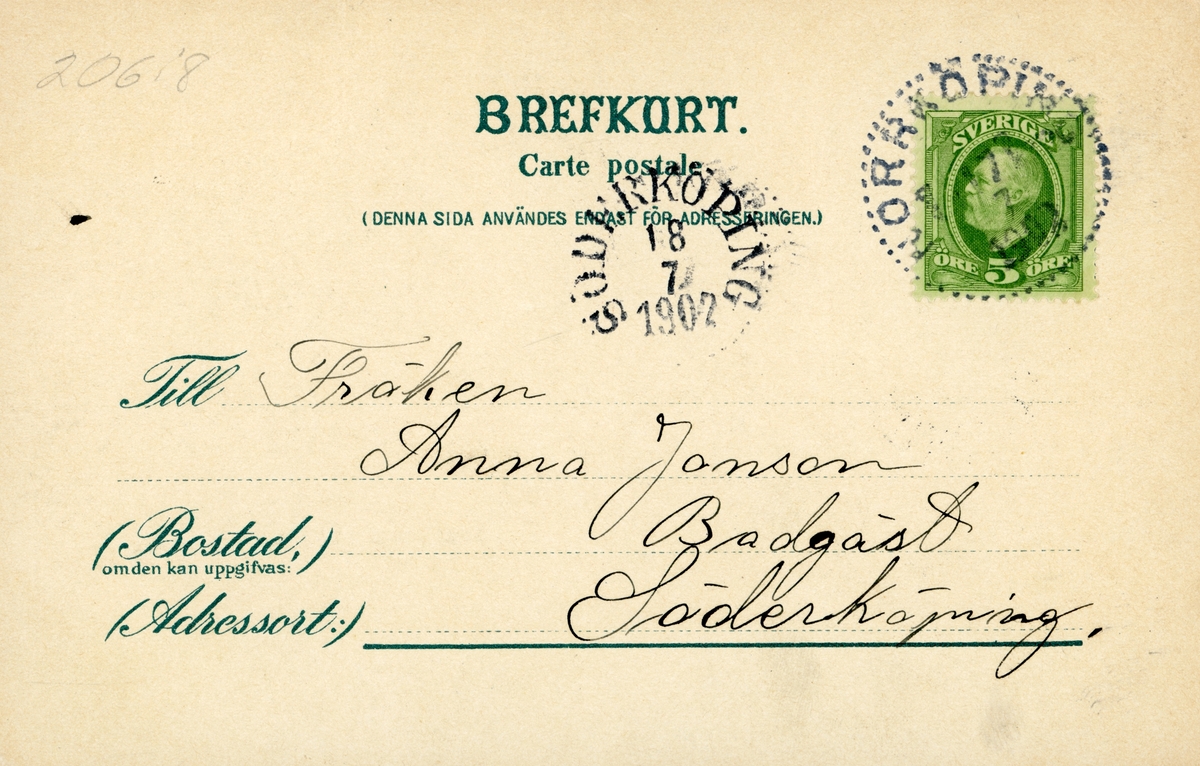 206:8
BREFKORT.
Carte postale
(DENNA SIDA ANVÄNDES ENDAST FÖR ADRESSERINGEN.)
NORRKÖPING
SVERIGE
ÖRE 5 ÖRE
SÖDERKÖPING
18
7
1902
Till Fröken
Anna Jonson
(Bostad,) Badgäst
om den kan uppgifvas:
(Adressort:) Söderköping.